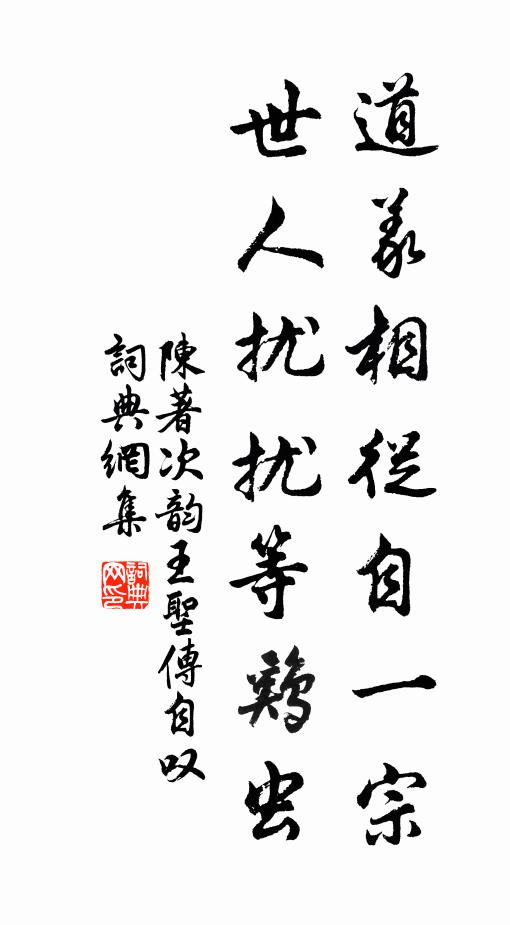 道義相從自一宗
世人扰扰等鷄虫
陳著次韵王聖傳自叹
詞典網集
詞典网印